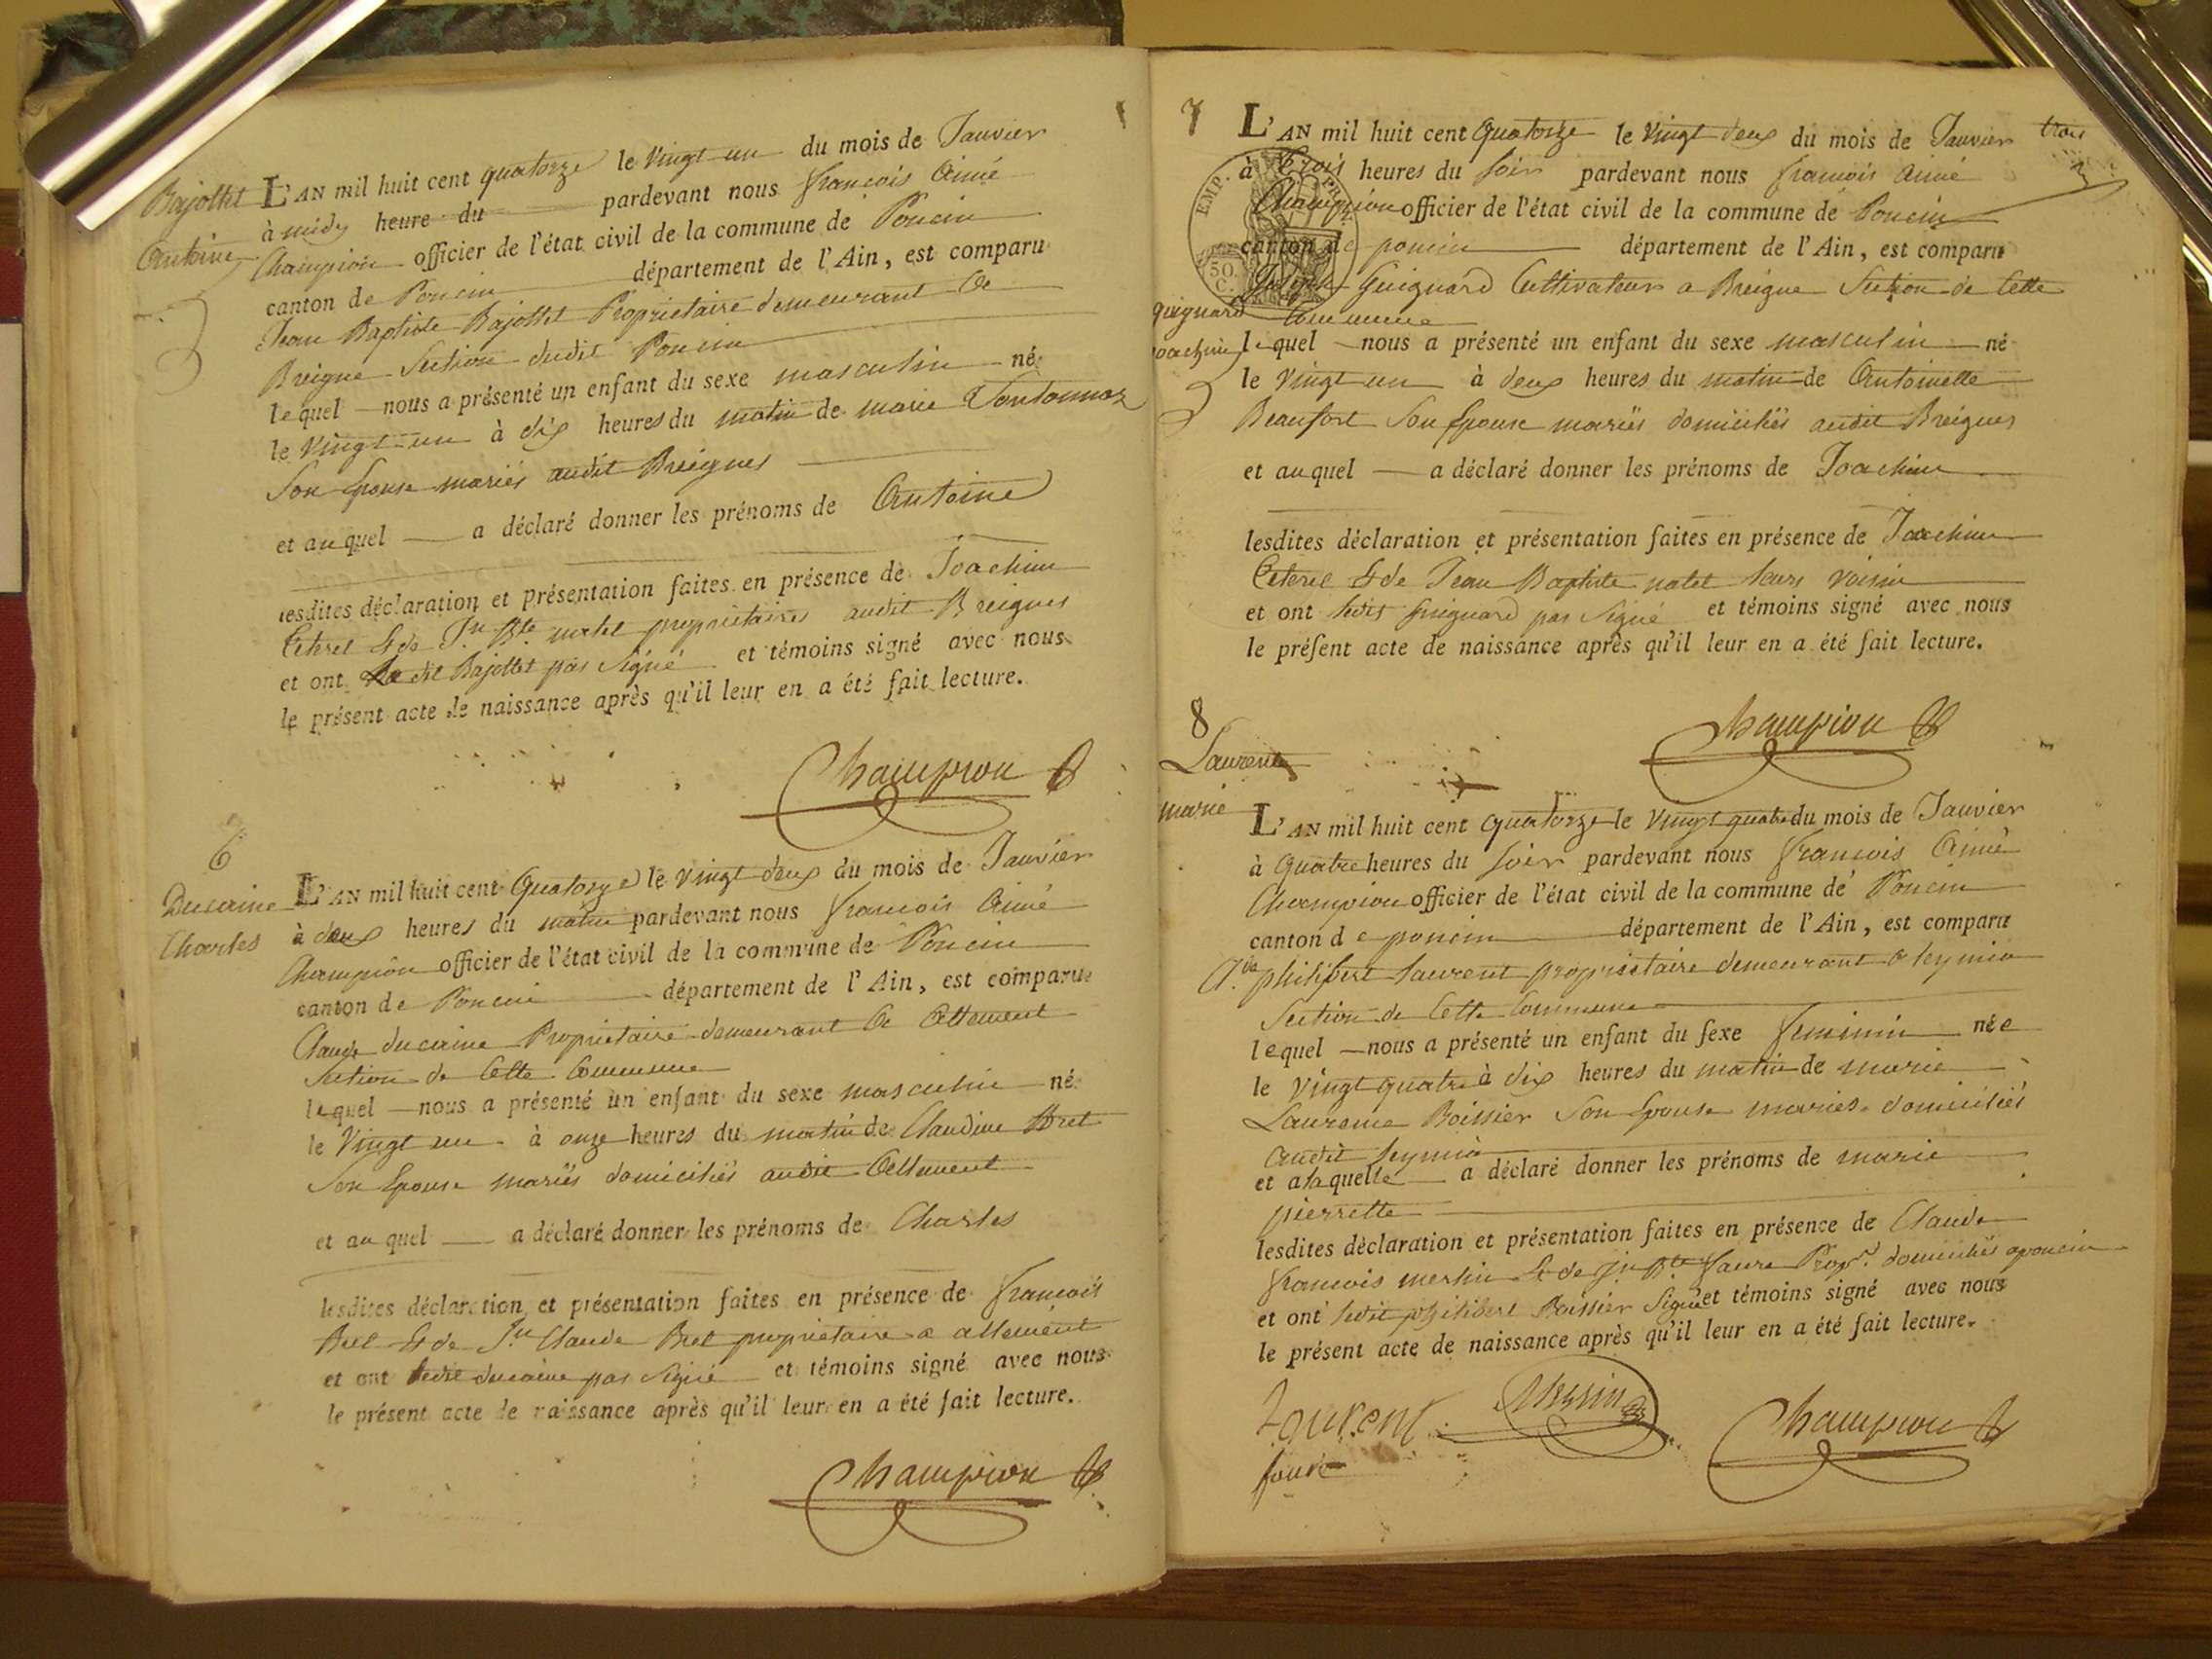 Bajollet
Antoine
L'AN mil huit cent quatorze le vingt un du mois de Janvier
à midy heure du pardevant nous françois Aimé
Champion officier de l'état civil de la commune de Poncin
canton de Poncin département de l'Ain, est comparu
Jean Baptiste Bajollet Proprietaire demeurant a
Breigne Section dudit Poncin
lequel nous a présenté un enfant du sexe masculin né
le Vingt un à dix heures du matin de marie
Son Epouse mariés audit Breignes
et auquel a déclaré donner les prénoms de Antoine
lesdites déclaration et présentation faites en présence de Joachim
Eterel & de Jn Bte natet proprietaires audit Breignes
et ont Ledit Bajollet pas Signé et témoins signé avec nous
le présent acte de naissance après qu'il leur en a été fait lecture.
Champion
6
Ducaine
Charles
L'AN mil huit cent Quatorze le vingt deux du mois de Janvier
à deux heures du matin pardevant nous françois Aimé
Champion officier de l'état civil de la commune de Poncin
canton de Poncin département de l'Ain, est comparu
Claude ducaine Proprietaire demeurant a Allement
Section de Cette Commune
lequel nous a présenté un enfant du sexe masculin né
le Vingt un à onze heures du matin de Claudine Bret
Son Epouse mariés domiciliés audit Allement
et auquel a déclaré donner les prénoms de Charles
lesdites déclaration et présentation faites en présence de françois
Bret & de Jn Claude Bret proprietaire a allement
et ont ledit ducaine pas Signé et témoins signé avec nous
le présent acte de naissance après qu'il leur en a été fait lecture.
Champion
7
trois
3
EMP.
50.
C.
guignard
joachim
L'AN mil huit cent Quatorze le Vingt deux du mois de Janvier
à trois heures du soir pardevant nous françois Aimé
Champion officier de l'état civil de la commune de Poncin
canton de poncin département de l'Ain, est comparu
Joseph Guignard Cultivateur a Breigne Section de Cette
Commune
lequel nous a présenté un enfant du sexe masculin né
le Vingt un à deux heures du matin de Antoinette
Beaufort Son Epouse mariés domiciliés audit Breignes
et auquel a déclaré donner les prénoms de Joachim
lesdites déclaration et présentation faites en présence de Joachim
Eterel & de Jean Baptiste natet leurs voisin
et ont ledit Guignard pas Signé et témoins signé avec nous
le présent acte de naissance après qu'il leur en a été fait lecture.
Champion
8
Laurent
marie
L'AN mil huit cent quatorze le vingt quatre du mois de Janvier
à quatre heures du soir pardevant nous françois Aimé
Champion officier de l'état civil de la commune de Poncin
canton de poncin département de l'Ain, est comparu
philibert Laurent proprietaire demeurant a leymia
Section de Cette Commune
lequel nous a présenté un enfant du sexe feminin née
le Vingt quatre à dix heures du matin de marie
Laurence Boissier Son Epouse mariés domiciliés
audit leymia
et a laquelle a déclaré donner les prénoms de marie
pierrette
lesdites déclaration et présentation faites en présence de Claude
françois merlin & de Jn Bte faure Propr. domiciliés a poncin
et ont ledit philibert Boissier Signé et témoins signé avec nous
le présent acte de naissance après qu'il leur en a été fait lecture.
Laurent
Champion
faure